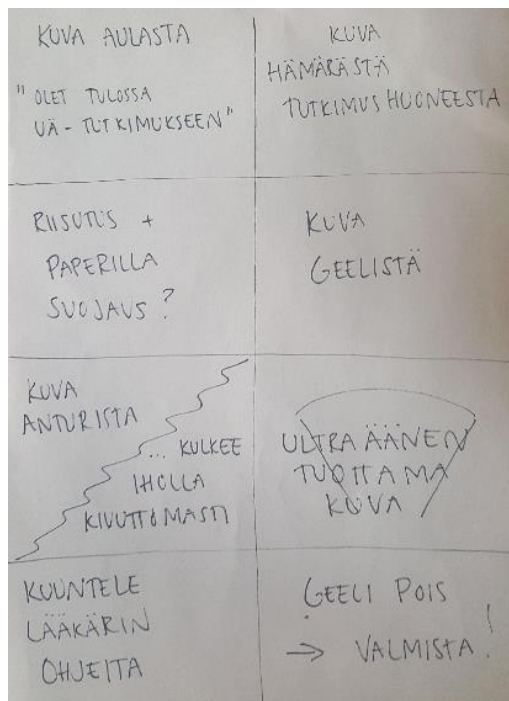 KUVA AULASTA
"OLET TULOSSA
UÄ-TUTKIMUKSEEN"
KUVA
HÄMÄRÄSTÄ
TUTKIMUSHUONEESTA
RIISUTUS +
PAPERILLA
SUOJAUS?
KUVA
GEELISTÄ
KUVA
ANTURISTA
... KULKEE
IHOLLA
KIVUTTOMASTI
ULTRAÄÄNEN
TUOTTAMA
KUVA
KUUNTELE
LÄÄKÄRIN
OHJEITA
GEELI POIS
→ VALMISTA!